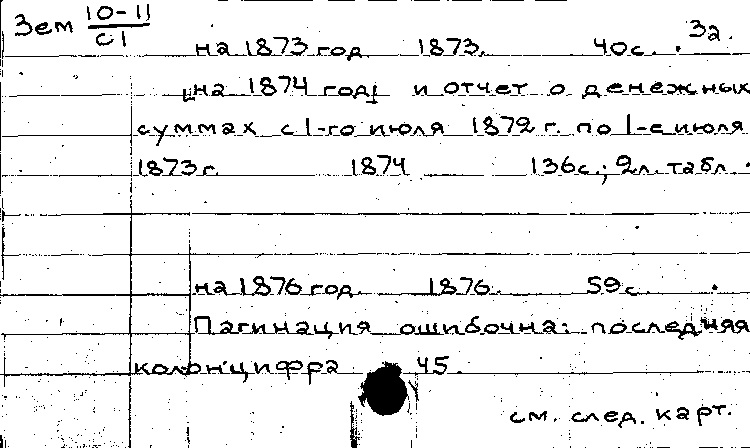 Зем 10-11/с1
3а.
на 1873 год 1873. 40с.
[на 1874 год] и отчет о денежных
суммах с 1-го июля 1872 г. по 1-е июля
1873 г. 1874 136с.; 2л. табл.
на 1876 год. 1876. 59с.
Пагинация ошибочна: последняя
колонцифра 45.
см. след. карт.